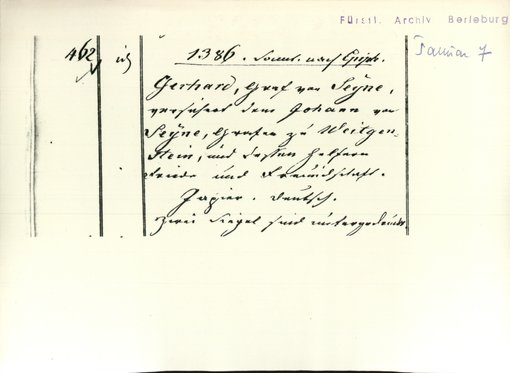 Fürstl. Archiv Berleburg
Januar 7
462
1386. Sonnt. nach Epiph.
Gerhard, Graf von Seyne,
versichert dem Johann von
Seyne, Grafen zu Witgen-
stein, und dessen Helfern
Friede und Freundschaft.
Papier. Deutsch.
Zwei Siegel sind untergedruckt